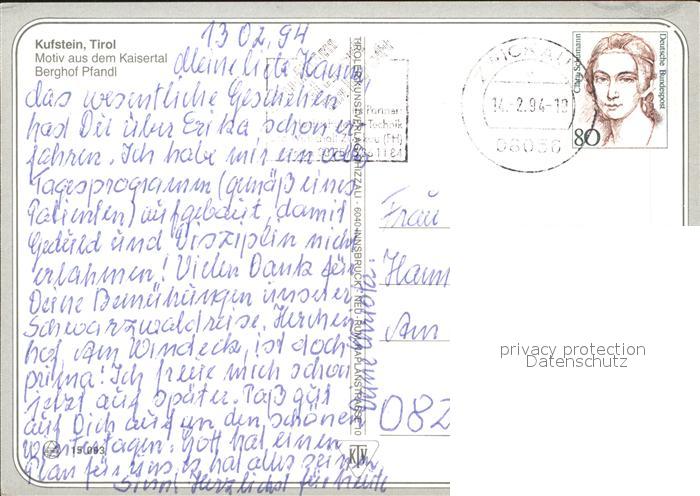 Kufstein, Tirol
Motiv aus dem Kaisertal
Berghof Pfandl
13 02, 94
Meine liebe Hanni
das wesentliche Geschehen
hast Du über Erika schon er
fahren. Ich habe mir ein
Tagesprogramm (gemäß eines
Patienten) aufgebaut, damit
Geduld und Disziplin nicht
erlahmen! Vielen Dank für
Deine Bemühungen unserer
Schwarzwaldreise. Hirschen
hof Am Windeck, ist doch
prima! Ich freue mich schon
jetzt auf später. Paß gut
auf Dich auf an den schönen
tagen. Gott hat einen
Plan für uns es hat alles seinen
Sinn! Herzlichst für heute
15 093
TIROLER KUNSTVERLAG CHIZZALI - 6040 INNSBRUCK NEU-RUM, KAPLANSTRASSE 10
KTV
Partner:
Technik
(FH)
14.-2.94-1
08056
Clara Schumann
Deutsche Bundespost
80
Frau
Hann
Am
082
privacy protection
Datenschutz